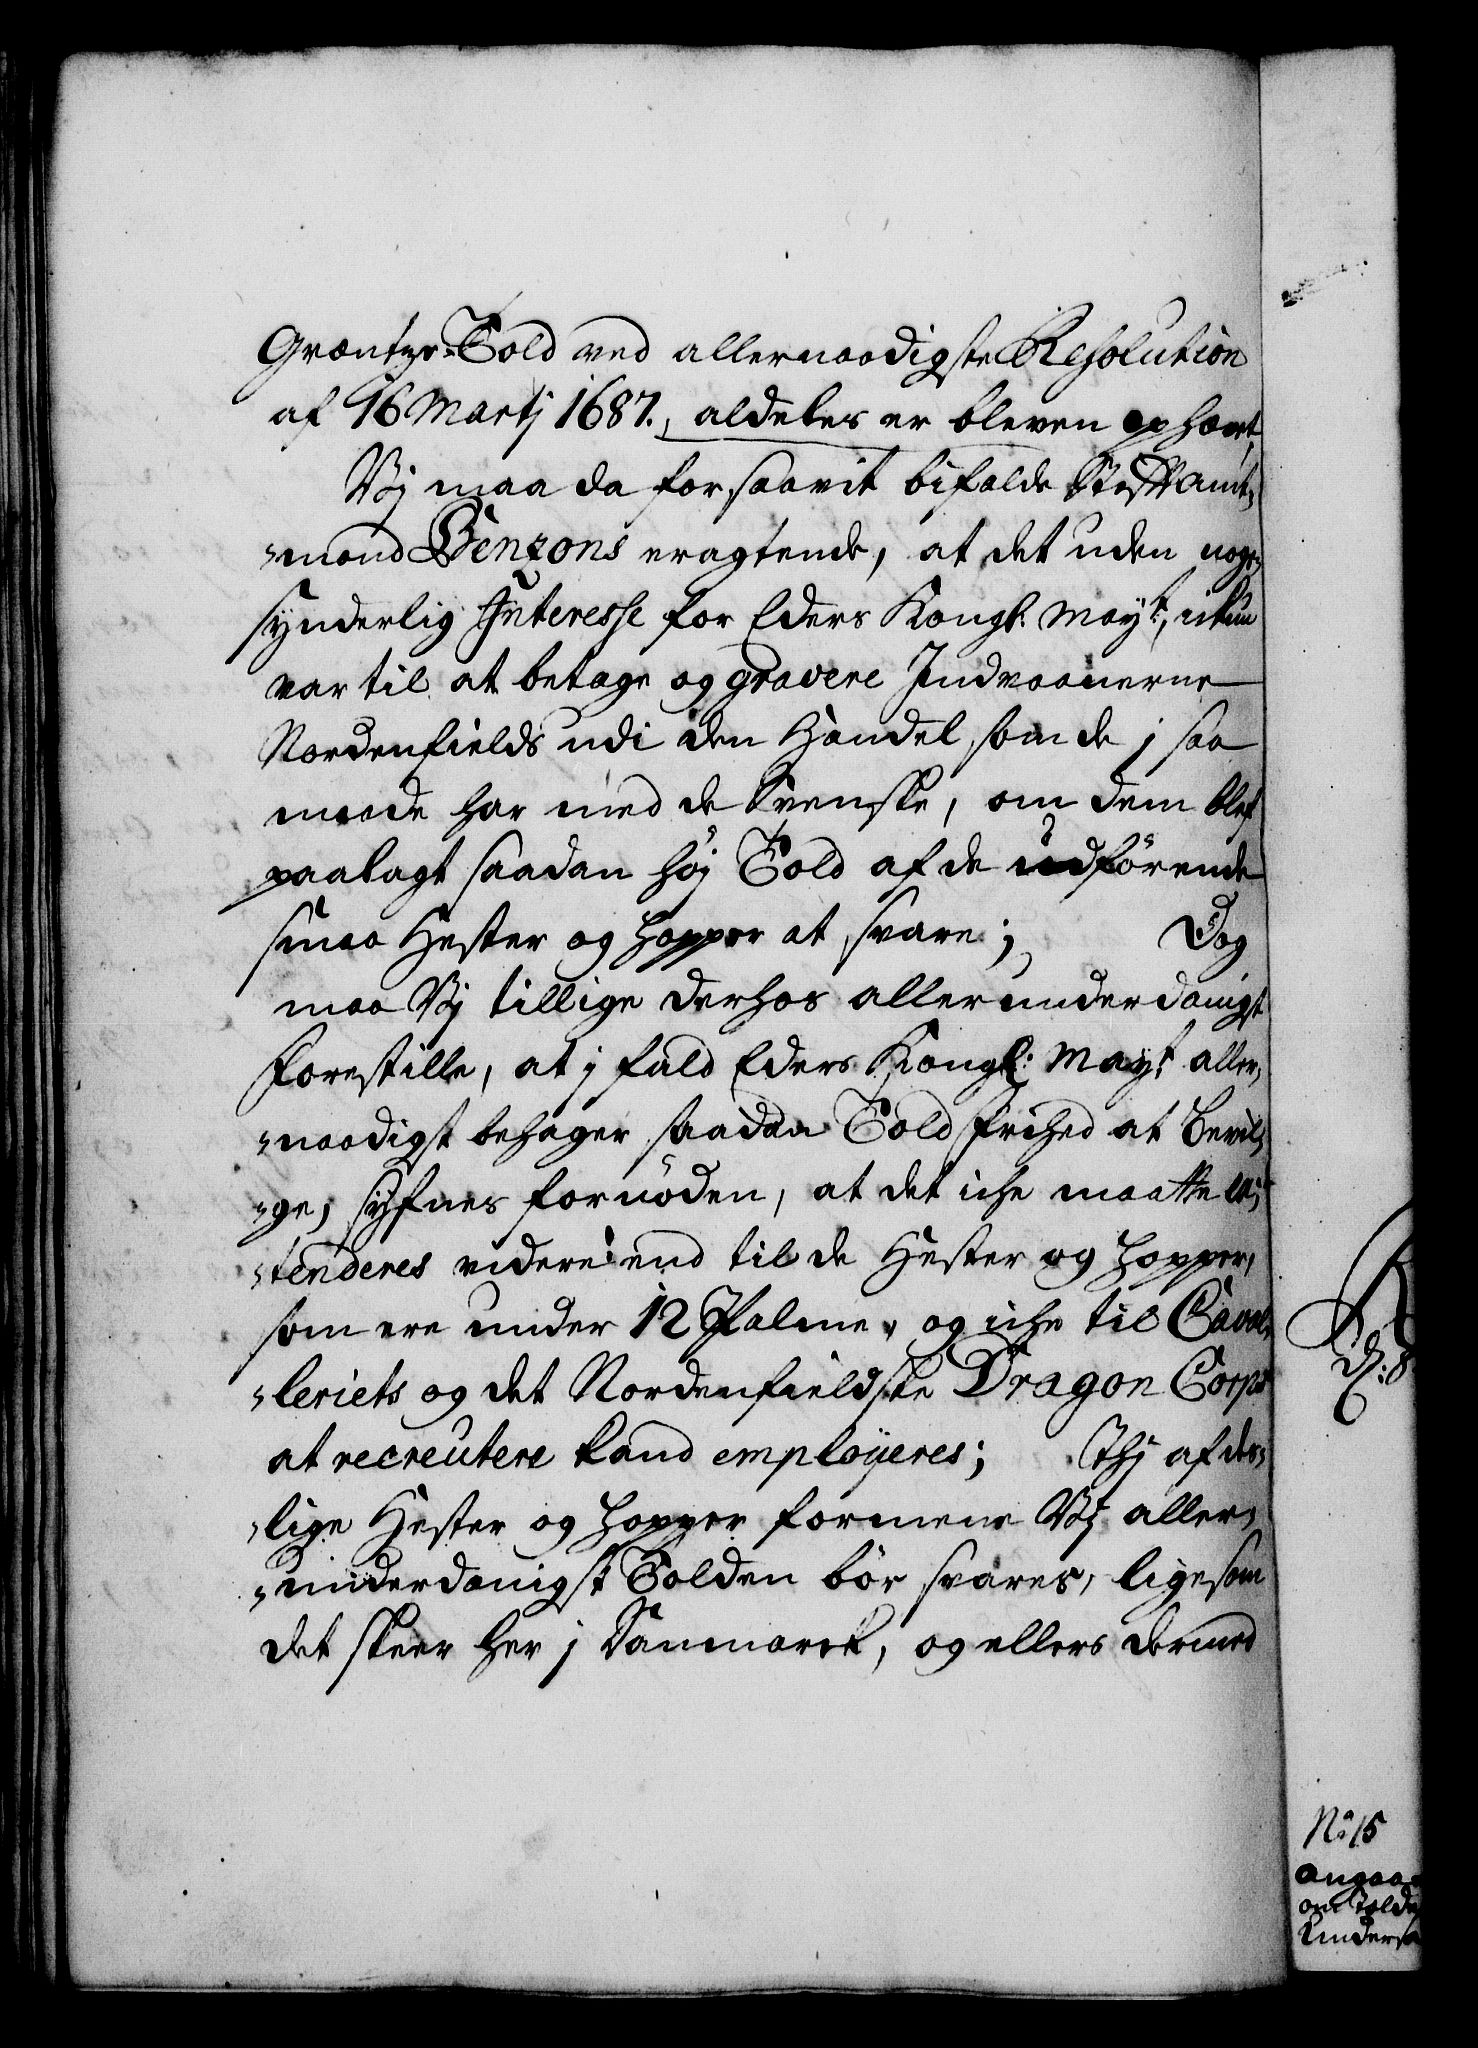 Græntze-Told ved allernaadigste Resolution
af 16 Martj 1687., aldeles er bleven ophævet,
Vj maa da forsaavit bifalde Stift Amt-
-mand Benzons eragtende, at det uden noge
synderlig Interesse for Eders Kongl: Mayt:, ikun
var til at betage og gravere Indvaanerne
Nordenfields udi den Handel, som de j saa
maade har med de Svenske, om dem blef
paalagt saadan høj Told af de udførende
smaa Hester og Hopper at svare; Dog
maa Vj tillige derhos allerunderdanigst
forestille, at j fald Eders Kongl: Mayt: aller-
-naadigst behager saadan Told frihed at Bevil-
-ge, syfnes fornøden, at det iche maatte ex-
-tenderes videre end til de Hester og Hopper,
som ere under 12 Palme, og iche til Caval-
-leriets og det Nordenfieldske Dragon Corps
at recreutere kand employeres; Thj af des-
-lige Hester og Hopper formene Vj aller-
-underdanigst Tolden bør svares, ligesom
det skeer her j Danmarck, og ellers dermed
No 15
angaa
om Tolde
Undersa